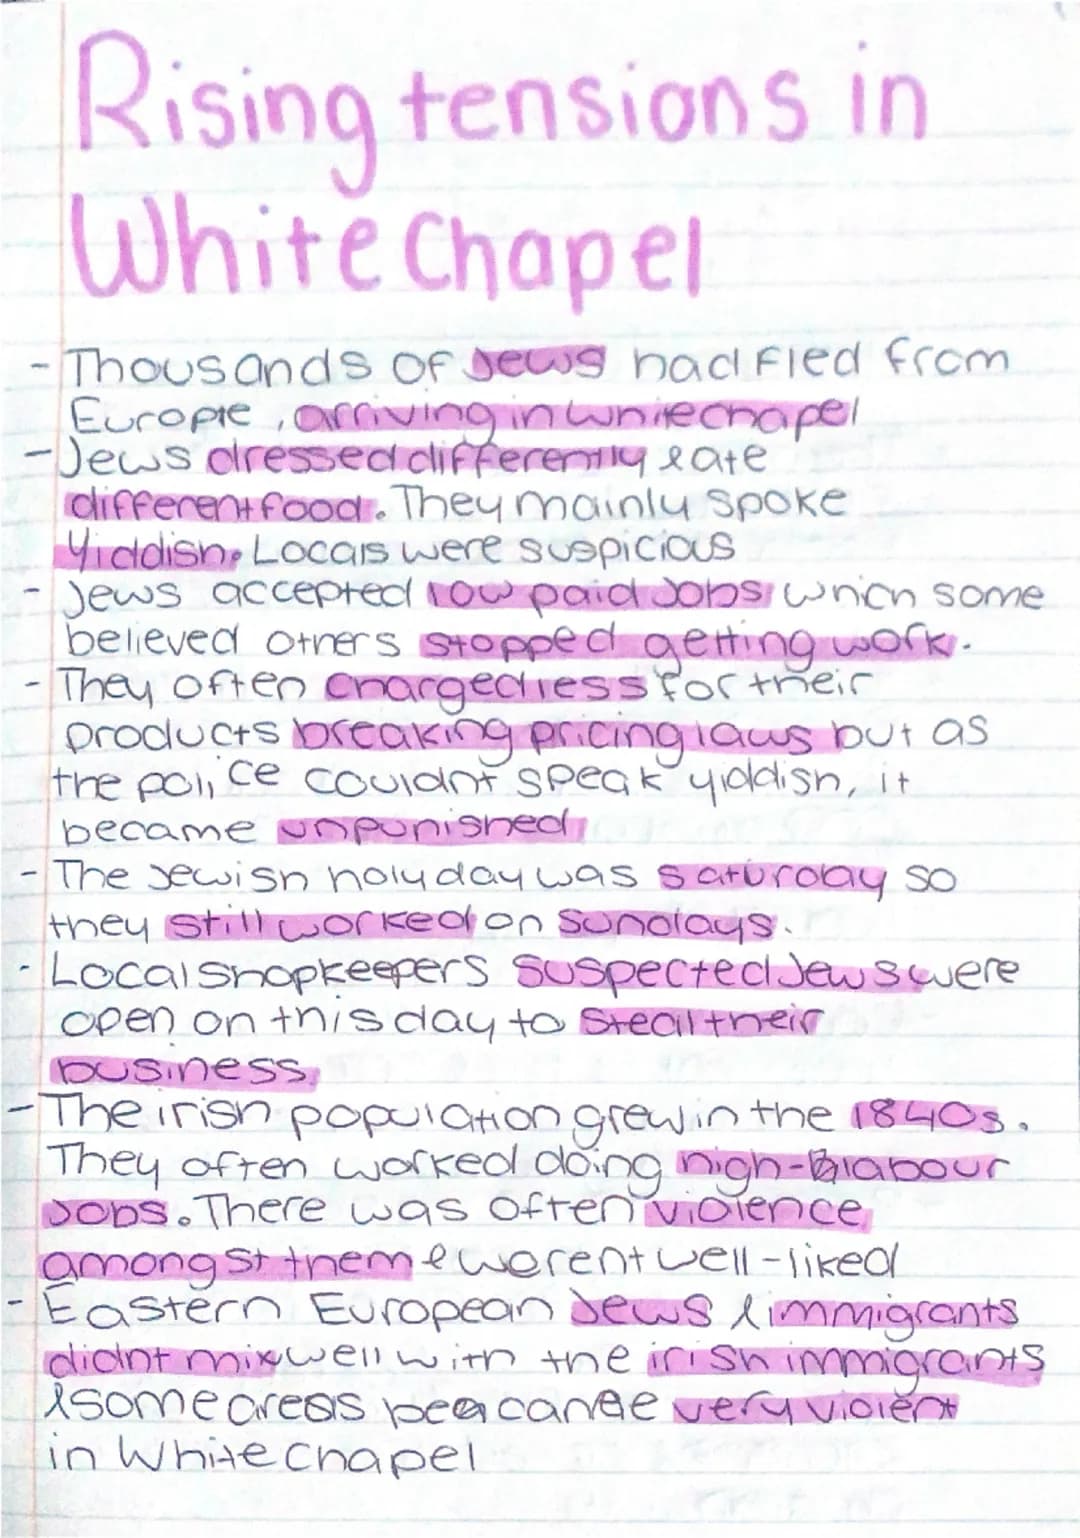 Rising tensions in
White Chapel
- Thousands of Jews had fled from
Europe, arriving in whitechapel
- Jews dressed differently & ate
different food. They mainly spoke
Yiddish. Locals were suspicious
- Jews accepted low paid jobs which some
believed others stopped getting work.
- They often charged less for their
products breaking pricing laws but as
the police couldnt speak yiddish, it
became unpunished
- The Jewish holy day was saturday so
they still worked on Sundays.
- Local Shopkeepers suspected Jews were
open on this day to steal their
business.
- The irish population grew in the 1840s.
They often worked doing high-labour
jobs. There was often violence
amongst them & werent well-liked
- Eastern European Jews & immigrants
didnt mix well with the irish immigrants
& some areas became very violent
in White Chapel